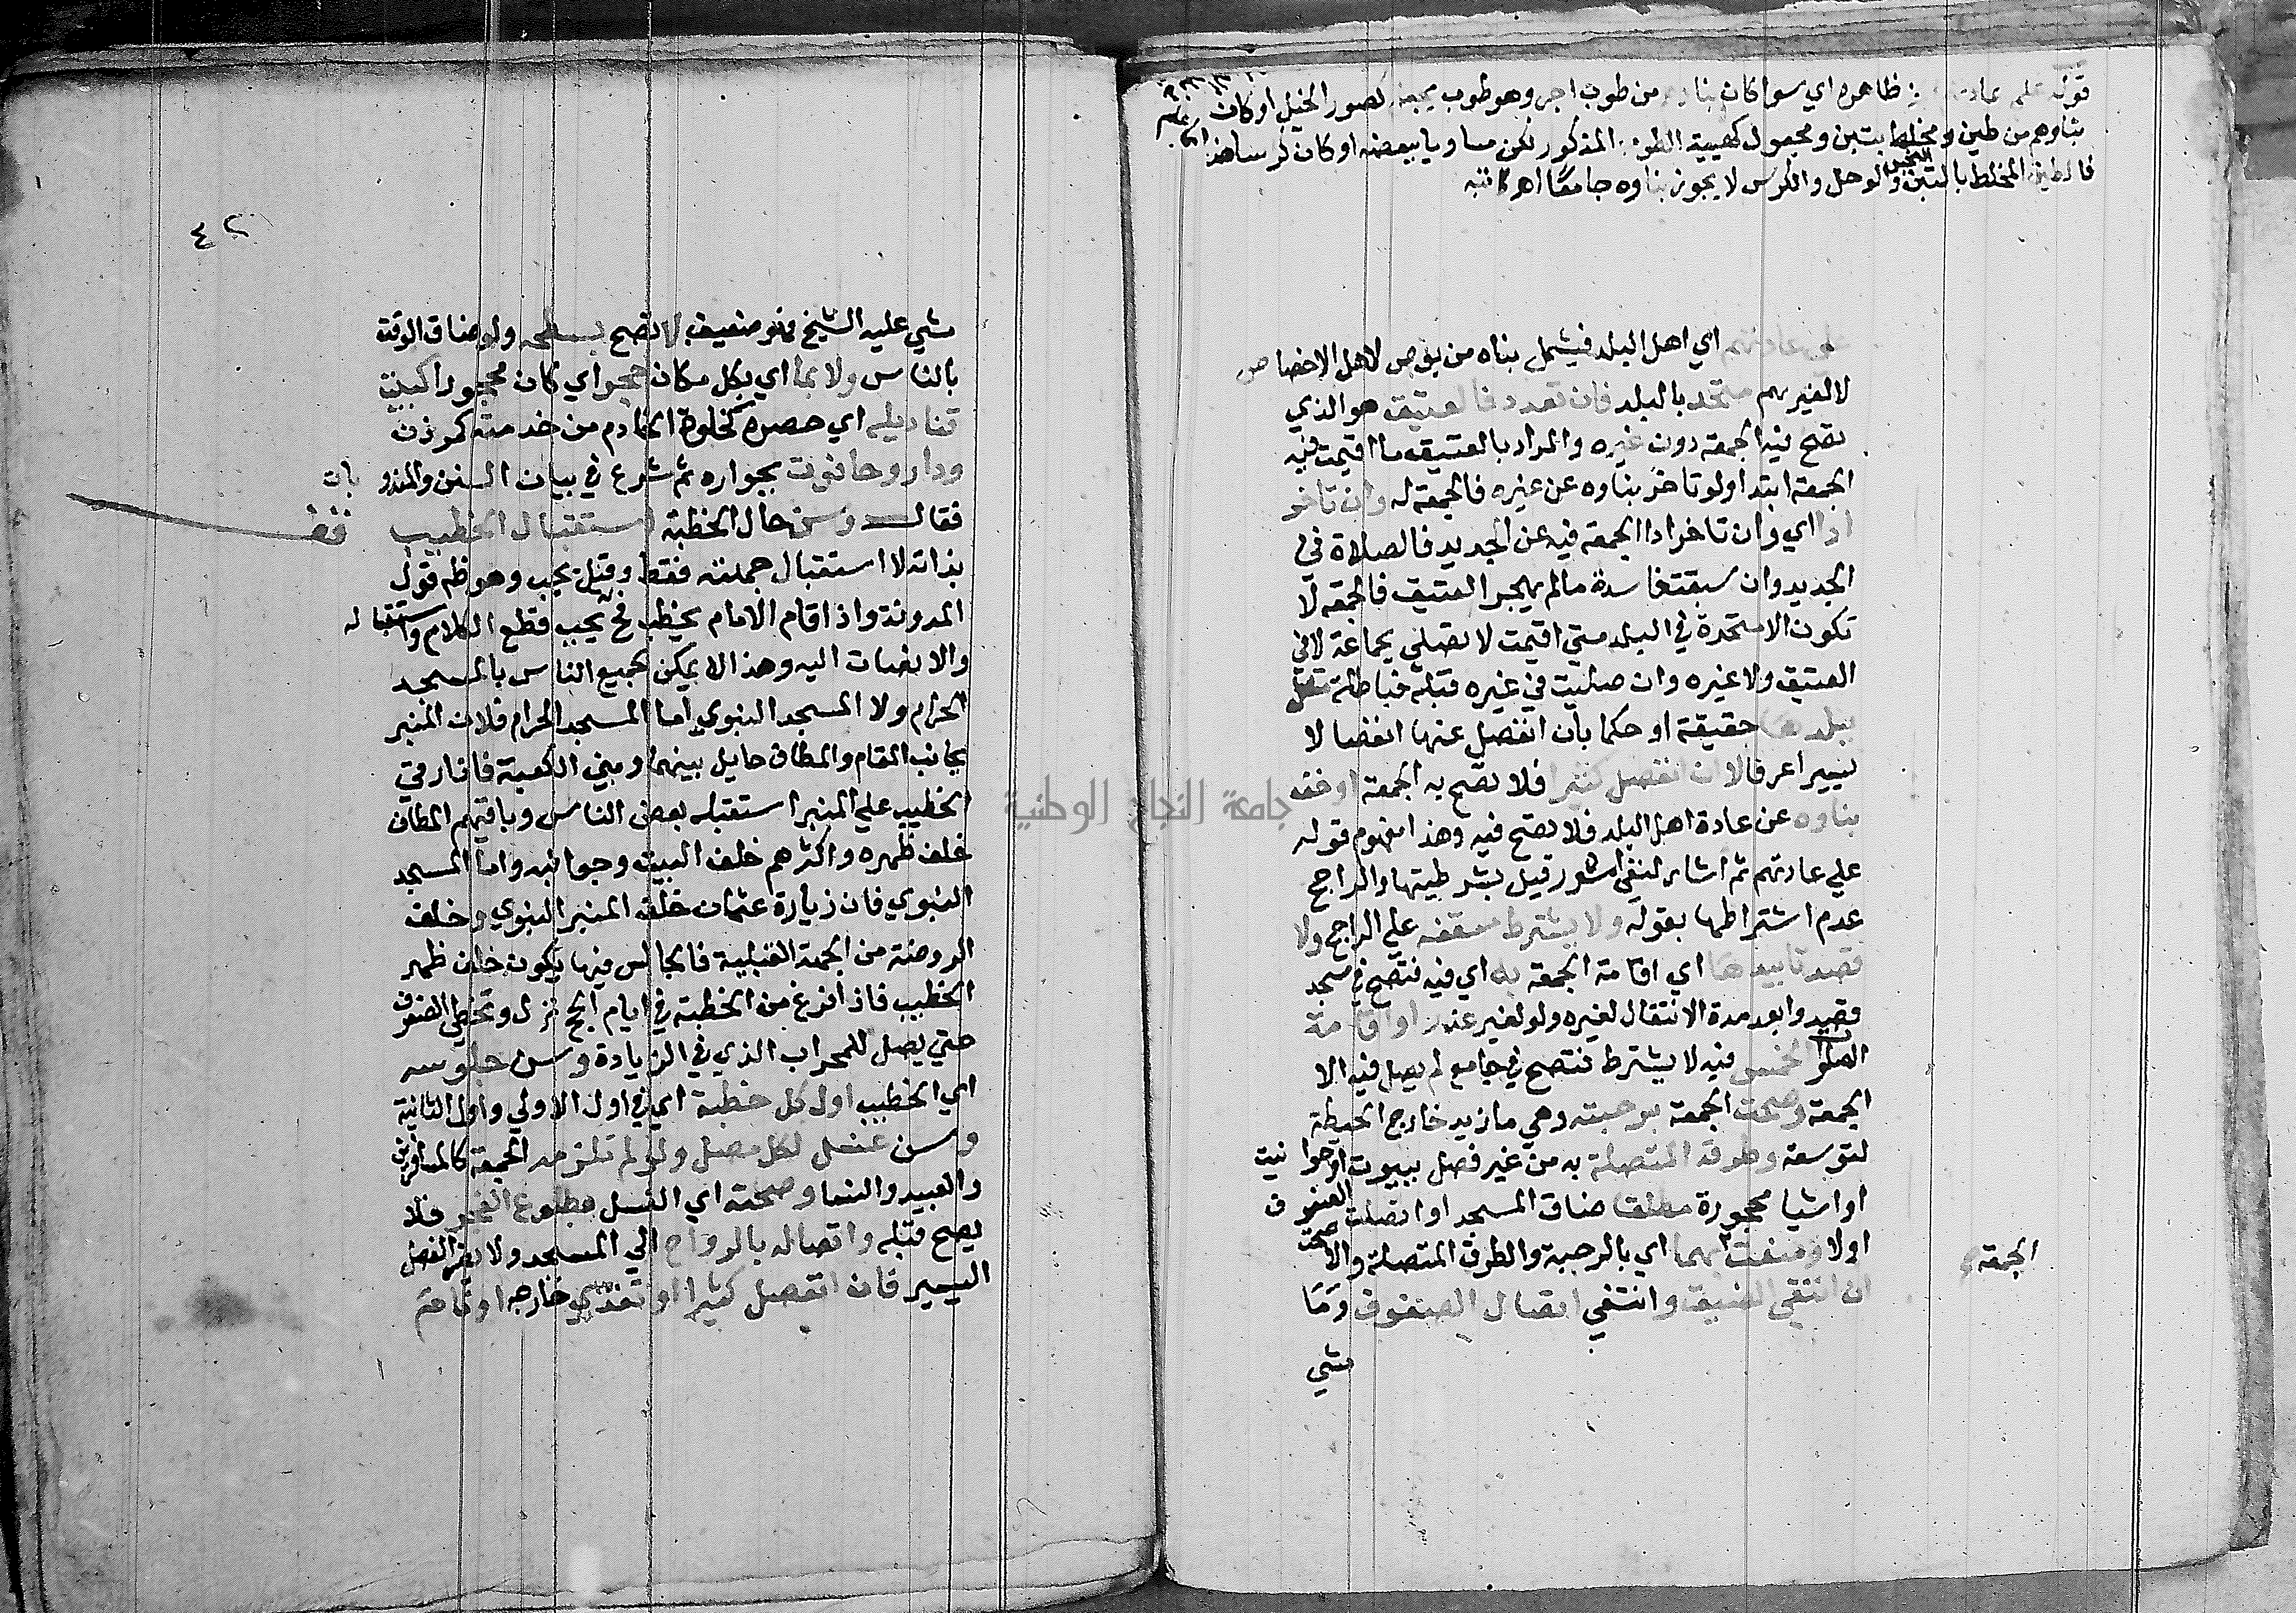 قوله علي عادتهم ظاهره اي سوا كان بناوهم من طوب اجر وهو طوب يجعل لصور الخيل او كان
بناوهم من طين ومخلط بتبن ومجعول كهيية الطوب المذكور لكن مساويا ببعضه او كان كرساهذا
فالطين المخلط بالتبن والوحل والكرس لا يجوز بناوه جامعا اهـ
علي عادتهم اي اهل البلد فيشمل بناه من بوص لاهل الاخصاص
لا لغيرهم متحد بالبلد فان تعدد فالعتيق هو الذي
تصح فيه الجمعة دون غيره والمراد بالعتيق ما اقيمت فيه
الجمعة ابتدا ولو تاخر بناوه عن غيره فالجمعة له وان تاخر
ادا اي وان تاخر ادا الجمعة فيه عن الجديد فالصلاة في
الجديد وان سبقت فاسدة مالم يهجر العتيق فالجمعة لا
تكون الا متحدة في البلد متي اقيمت لا تصلي بجماعة لا في
العتيق ولا غيره وان صليت في غيره قبله فباطلة متصل
ببلدها حقيقة او حكما بان انفصل عنها انفصالا
يسيرا عرفا لا ان انفصل كثيرا فلا تصح به الجمعة او خف
بناوه عن عادة اهل البلد فلا تصح فيه وهذا مفهوم قوله
علي عادتهم ثم اشار لنفي امور قيل بشرطيتها والراجح
عدم اشتراطها بقوله ولا يشترط سقفه علي الراجح ولا
قصد تابيدها اي اقامة الجمعة به اي فيه فتصح في مسجد
قصدوا بعد مدة الانتقال لغيره ولو لغير عذر او اقامة
الصلوات الخمس فيه لا يشترط فتصح في جامع لم يصل فيه الا
الجمعة وصحت الجمعة برحبته وهي ما زيد خارج المحيطة
لتوسعة وطرقه المتصلة به من غير فصل ببيوت او حوانيت
او اشيا محجورة مطلقا ضاق المسجد او اتصلت الصفوف
اولا ومنعت بهما اي بالرحبة والطرق المتصلة والا صحت
الجمعة
ان انتفي الضيق وانتفي اتصال الصفوف وما
مشي
٤٢
مشي عليه الشيخ فهو ضعيف لا تصح بسطحه ولو ضاق الوقت
بالناس ولا بما اي بكل مكان حجر اي كان محجورا كبيت
قناديله اي حصره كخلوة الخادم من خدمته كموذن
ودار وحانوت بجواره ثم شرع في بيان السنن والمندوبات
فقال وسن حال الخطبة استقبال الخطيب
بذاته لا استقبال جهته فقط وقيل يجب وهو ظم قول
المدونة واذا قام الامام يخطب فح يجب قطع الكلام واستقباله
والانصات اليه وهذا لا يمكن لجميع الناس بالمسجد
الحرام ولا المسجد النبوي اما المسجد الحرام فلان المنبر
بجانب المقام والمطاف حايل بينهما وبين الكعبة فاذا رقي
الخطيب علي المنبر استقبله بعض الناس وباقيهم المطاف
خلف ظهره واكثرهم خلف البيت وجوانبه واما المسجد
النبوي فان زيادة عثمان خلف المنبر النبوي وخلف
الروضة من الجهة القبلية فالجالس فيها يكون خلف ظهر
الخطيب فاذا فرغ من الخطبة في ايام الحج نزل وتخطي الصفوف
حتي يصل للمحراب الذي في الزيادة وسن جلوسه
اي الخطيب اول كل خطبة اي في اول الاولي واول الثانية
وسن غسل لكل مصل ولو لم تلزمه الجمعة كالمسافرين
والعبيد والنسا وصحته اي الغسل بطلوع الفجر فلا
يصح قبله واتصاله بالرواح الي المسجد ولا يضر الفصل
اليسير فان انفصل كثيرا او تغذي خارجه او نام
جامعة النجاح الوطنية